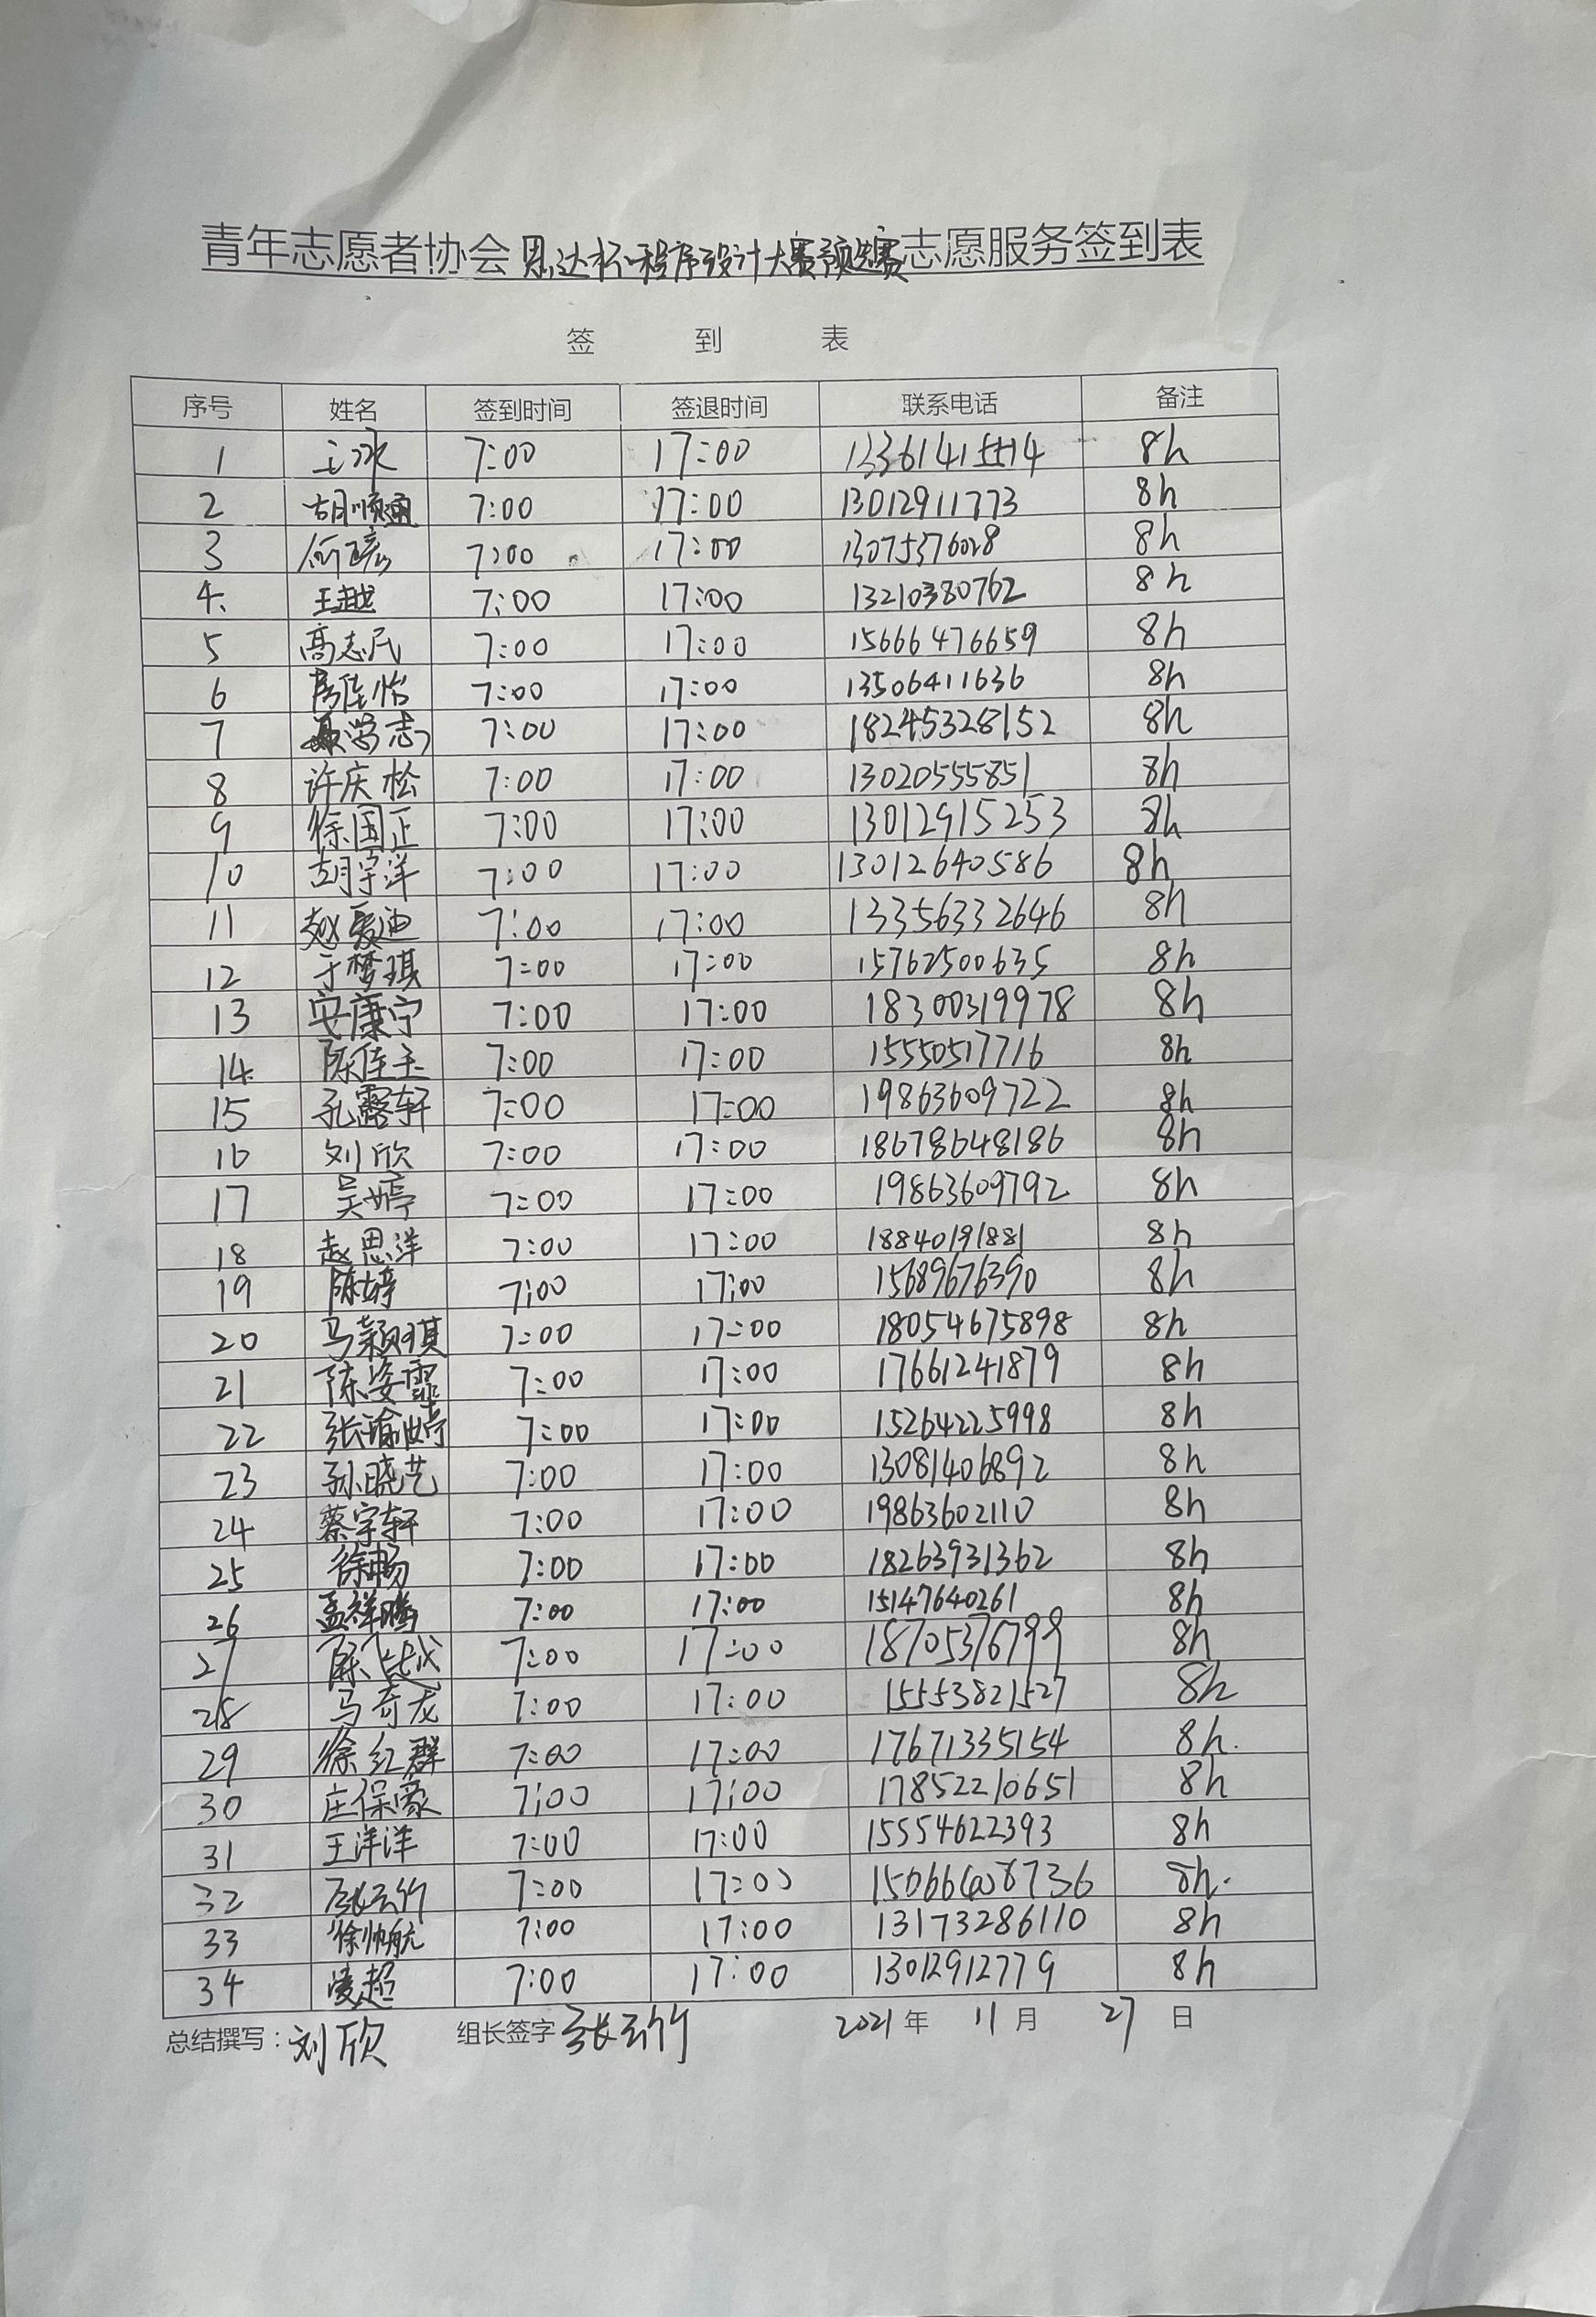 青年志愿者协会思达杯程序设计大赛预选赛志愿服务签到表
签 到 表
序号 姓名 签到时间 签退时间 联系电话 备注
1 王冰 7:00 17:00 8h
2 胡顺通 7:00 17:00 13012911773 8h
3 7:00 17:00 13075376028 8h
4. 王越 7:00 17:00 13210380762 8h
5 高志民 7:00 17:00 15666476659 8h
6 房佳怡 7:00 17:00 13506411636 8h
7 聂学志 7:00 17:00 18245328152 8h
8 许庆松 7:00 17:00 13020555851 8h
9 徐国正 7:00 17:00 13012915253 8h
10 胡宇洋 7:00 17:00 13012640586 8h
11 赵爱迪 7:00 17:00 13356332646 8h
12 于梦琪 7:00 17:00 15762500635 8h
13 安康宁 7:00 17:00 18300319978 8h
14. 陈佳玉 7:00 17:00 15550517716 8h
15 孔露轩 7:00 17:00 19863609722 8h
16 刘欣 7:00 17:00 18678648186 8h
17 吴婷 7:00 17:00 19863609792 8h
18 赵思洋 7:00 17:00 18840191881 8h
19 陈婷 7:00 17:00 15689676390 8h
20 马颖琪 7:00 17:00 18054675898 8h
21 陈姿霏 7:00 17:00 17661241879 8h
22 张瑜婷 7:00 17:00 15264225998 8h
23 孙晓艺 7:00 17:00 13081406892 8h
24 蔡宇轩 7:00 17:00 19863602110 8h
25 徐畅 7:00 17:00 18263931362 8h
26 孟祥腾 7:00 17:00 15147640261 8h
27 陈飞越 7:00 17:00 18705376799 8h
28 马奇龙 7:00 17:00 15553821527 8h
29 徐红群 7:00 17:00 17671335154 8h.
30 庄保豪 7:00 17:00 17852210651 8h
31 王洋洋 7:00 17:00 15554622393 8h
32 张云竹 7:00 17:00 15066408736 8h.
33 徐帅航 7:00 17:00 13173286110 8h
34 凌超 7:00 17:00 13012912779 8h
总结撰写：刘欣 组长签字 张云竹 2021年 11月 27日